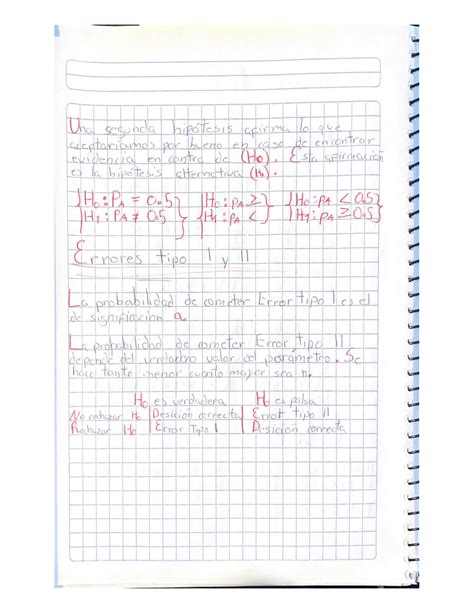 Una segunda hipótesis afirma lo que
aceptaríamos por bueno en caso de encontrar
evidencia en contra de (Ho). Esta afirmación
es la hipótesis alternativa (H1).
H0: PA = 0.5} |H0: PA ≥} |H0: PA < 0.5}
H1: PA ≠ 0.5} |H1: PA <} |H1: PA ≥ 0.5}
Errores tipo I y II
La probabilidad de cometer Error tipo I es el
de significacion a.
La probabilidad de cometer Error tipo II
depende del verdadro valor del parámetro. Se
hace tanto menor cuanto mayor sea n.
Ho es verdadera Ho es falsa
No rechazar Ho | Desición correcta | Error tipo II
Rechazar Ho | Error Tipo I | Desición correcta